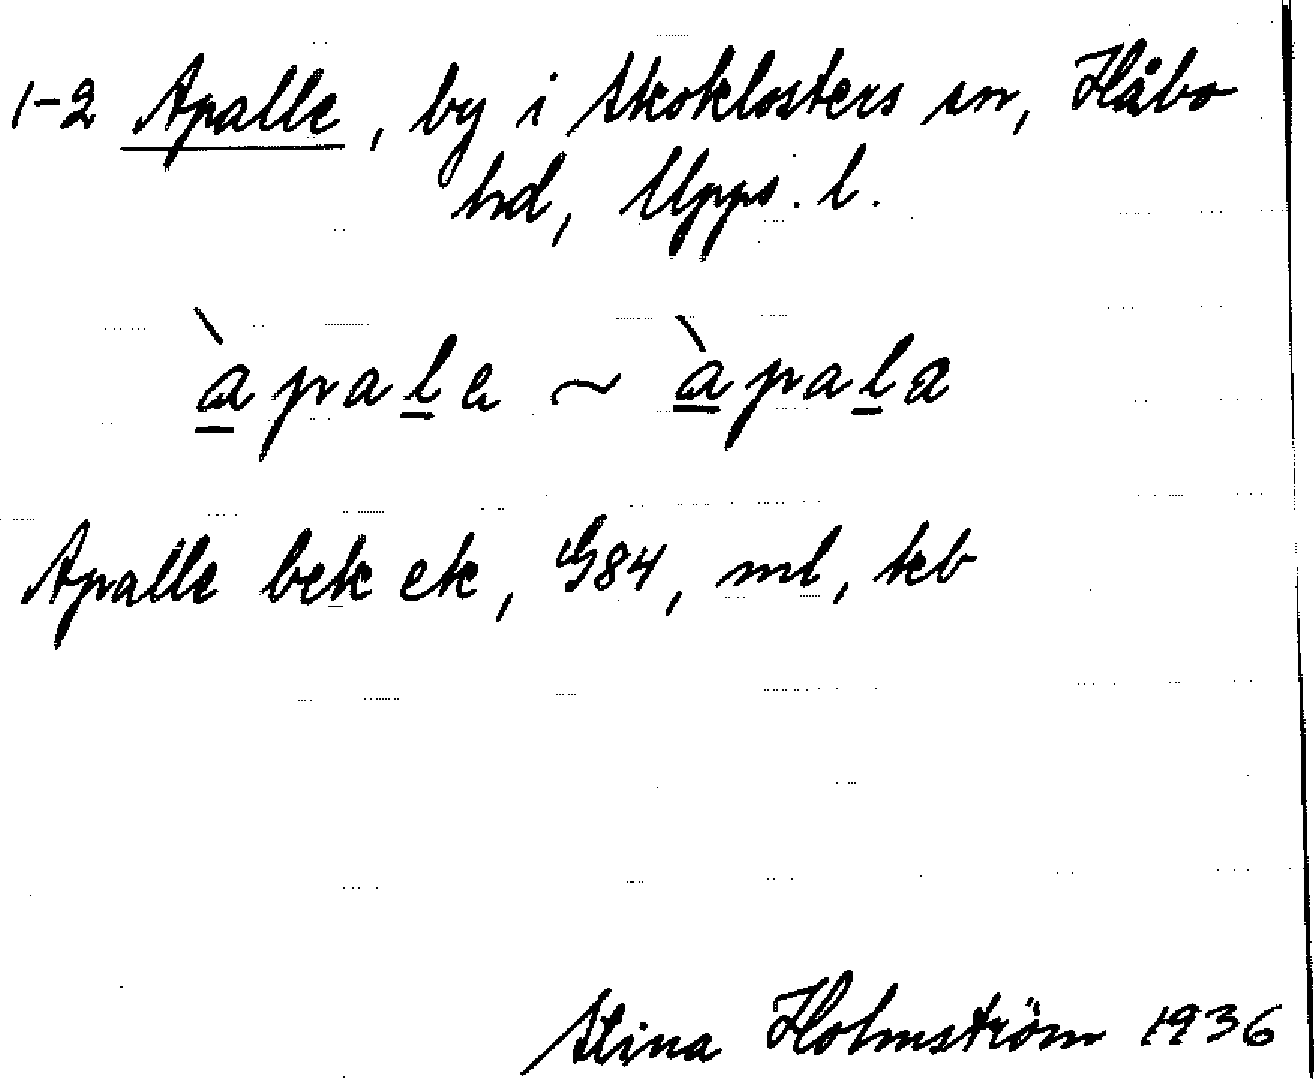 1-2 Apalle, by i Skoklosters sn, Håbo
hd, Upps. l.
à̲pal̲e ~ à̲pal̲a
Apalle bek ek, G84, ml, kb
Stina Holmström 1936